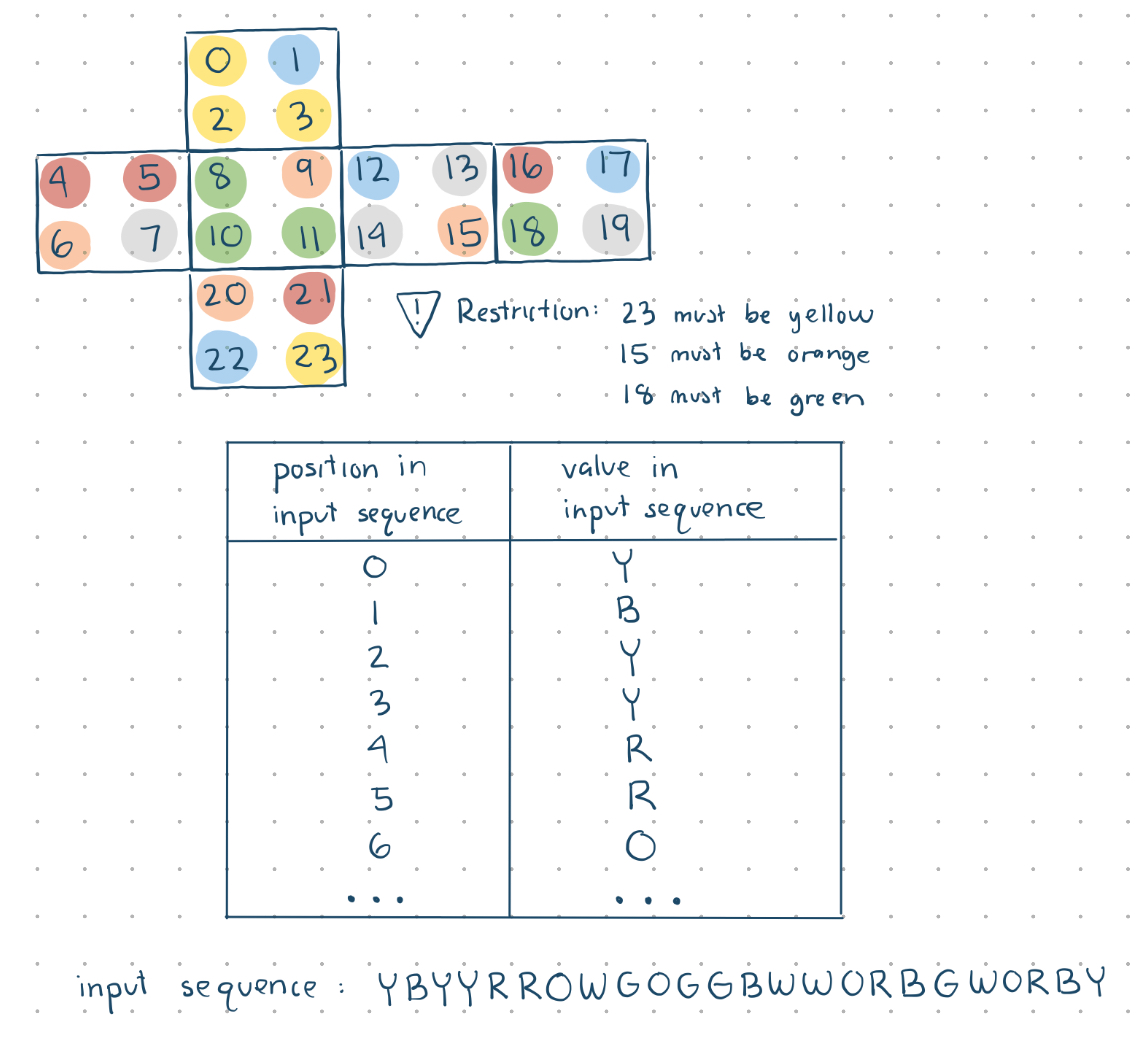 0 1
2 3
4 5 8 9 12 13 16 17
6 7 10 11 14 15 18 19
20 21
22 23
! Restriction: 23 must be yellow
15 must be orange
18 must be green
position in input sequence value in input sequence
0 Y
1 B
2 Y
3 Y
4 R
5 R
6 O
... ...
input sequence : YBYYRROWGOGGBWWORBGWORBY